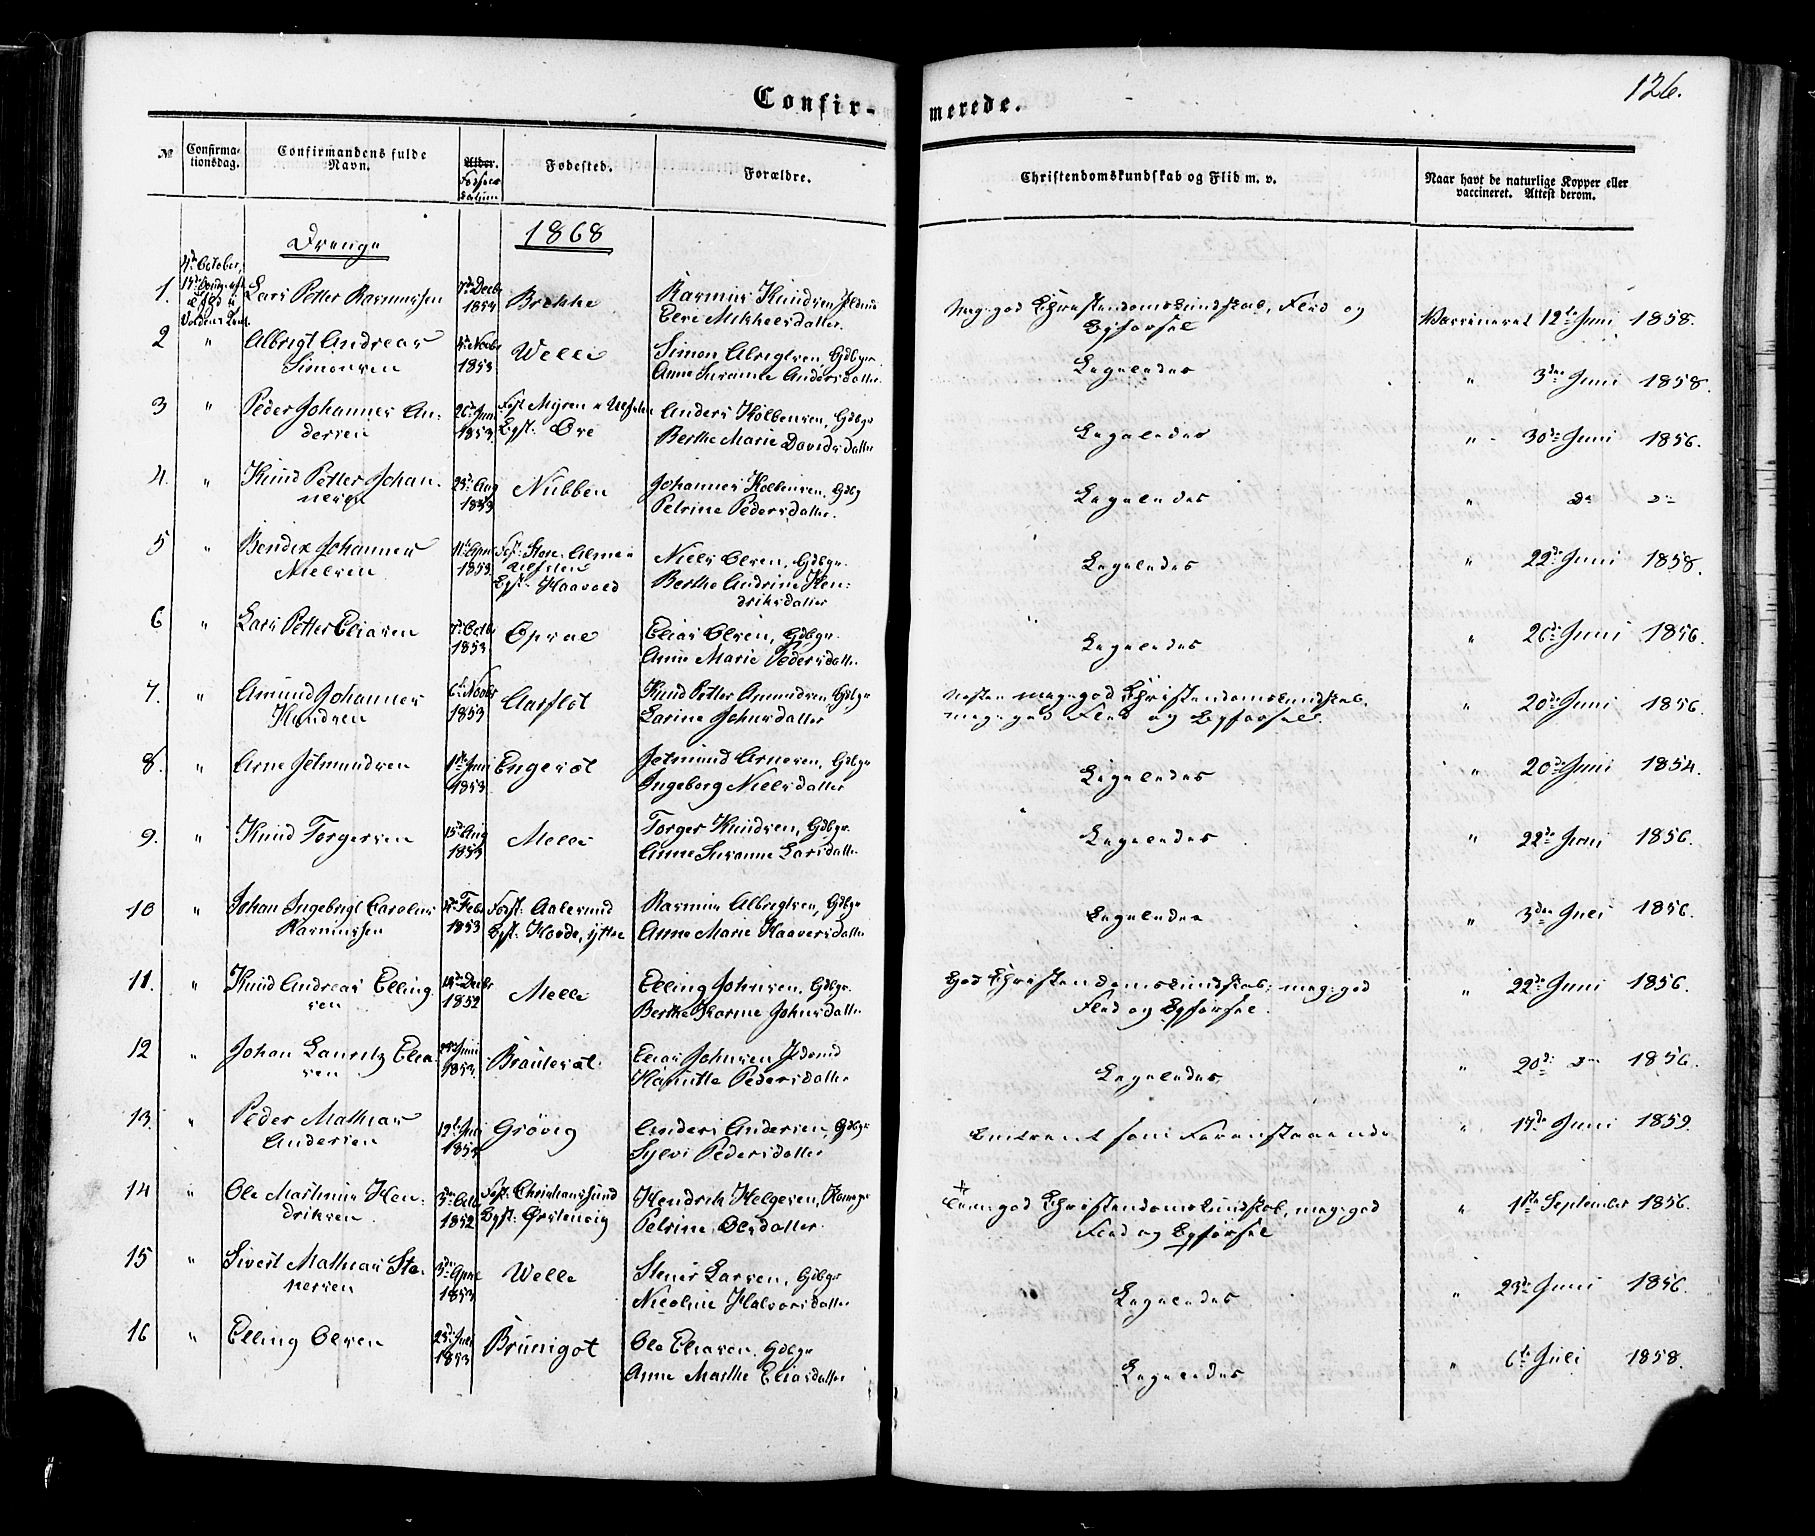 126.
Confir- merede.
№ Confirma-tionsdag. Confirmandens fulde Navn. Alder. Fødsels datum Fødested. Forældre. Christendomskundskab og Flid m. v. Naar havt de naturlige Kopper eller vaccineret. Attest derom.
Drenge 1868
4de October,
1. Lars Petter Rasmussen 7de Decbr 1854 Brekke Rasmus Knudsen
Mikkelsdatter. Meg: god Christendomskundskab, Flid og
Opførsel Vaccineret 12te Juni 1858.
2 " Albrigt Andreas
Simonsen Novbr 1853 Welle Simon Albrigtsen, Gdbgr
Anne Susanne Andersdatter Ligeledes " 3die Juni 1858.
3 " Peder Johannes An-
dersen Juni 1853. Fød: Myren
Opst: Øre Anders Kolbensen, Gdbgr
Berthe Marie Davidsdatter Ligeledes " 30de Juni 1856.
4. " Knud Petter Johan-
nesen Aug 1853 Nubben Johannes Kolbensen, Gdbg
Petrine Pedersdatter. Ligeledes " do do
5 " Bendix Johannes
Nielsen April 1853. Opst: Haavold Niels Olsen, Gdbgr
Berthe Andrine Hen-
driksdatter Ligeledes " 22de Juni 1858.
6 " Lars Petter Eliasen 7de Octbr 1853. Opsal Elias Olsen, Gdbgr.
Anne Marie Pedersdatter Ligeledes " 26de Juni 1856.
7. " Amund Johannes
Knudsen 6te Novbr 1853 Aarflot Knud Petter Amundsen, Gdbgr
Larine Johnsdatter Næsten meg: god Christendomskundskab,
meg: god Flid og Opførsel. " 20de Juni 1856.
8. " Arne Jetmundsen Juni 1853 Engeset Jetmund Arnesen, Gdbgr
Ingeborg Nielsdatter Ligeledes " 20de Juni 1854.
9. " Knud Torgersen 15de Aug 1853 Melle Torger Knudsen, Gdbgr.
Anne Susanne Larsdatter Ligeledes " 22de Juni 1856.
10 " Johan Ingebrigt Carolus
Rasmussen Febr 1853 Fødst: Aalesund
Opst: Hovde, ytre Rasmus Albrigtsen, Gdbgr
Anne Marie Haaversdatter Ligeledes " 3die Juli 1856.
11. " Knud Andreas Elling
sen Decbr 1852 Melle Elling Johnsen, Gdbgr.
Berthe Karine Johnsdatter God Christendomskundskab, meg: god
Flid og Opførsel. " 22de Juni 1856.
12 " Johan Lauritz Elia-
sen Juni 1853. Brauteset Elias Johnsen
Pedersdatter Ligeledes " 20de do 1856.
13. " Peder Mathias
Andersen 1854 Grøvig Anders Andersen, Gdbgr
Sylvi Pedersdatter Omtrent som Foranstaaende " 17de Juni 1859.
14 " Ole Martinus Hen-
driksen Octbr 1852 Fødst: Christianssund
Opst: Ørstenvig Hendrik Helgesen,
Petrine Olsdatter. Tem: god Christendomskundskab, meg: god
Flid og Opførsel " 1ste September 1856.
15 " Sivert Mathias Ste-
nersen 3de April 1853 Welle Stener Larsen, Gdbgr
Nicoline Halvorsdatter Ligeledes " 23de Juni 1856.
16 " Elling Olsen 23de Juli 1853 Brunigot Ole Eliasen, Gdbgr
Anne Marthe Eliasdatter Ligeledes " 6te Juli 1858.